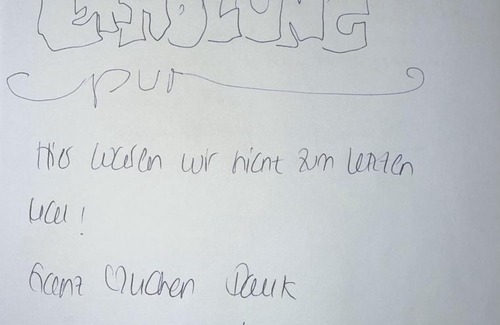 ERHOLUNG
pur
Hier waren wir nicht zum letzten
Mal!
Ganz lichen Dank